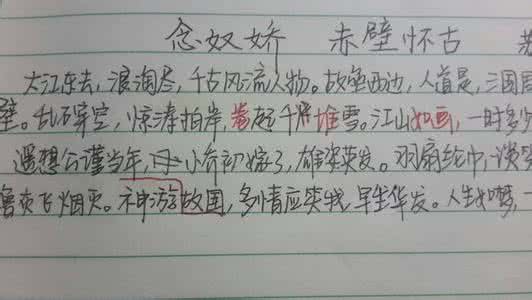 念奴娇 赤壁怀古
大江东去，浪淘尽，千古风流人物。故垒西边，人道是，三国周
壁。乱石穿空，惊涛拍岸，卷起千堆雪。江山如画，一时多少
遥想公谨当年，小乔初嫁了，雄姿英发。羽扇纶巾，谈笑
鲁灰飞烟灭。神游故国，多情应笑我，早生华发。人生如梦，一